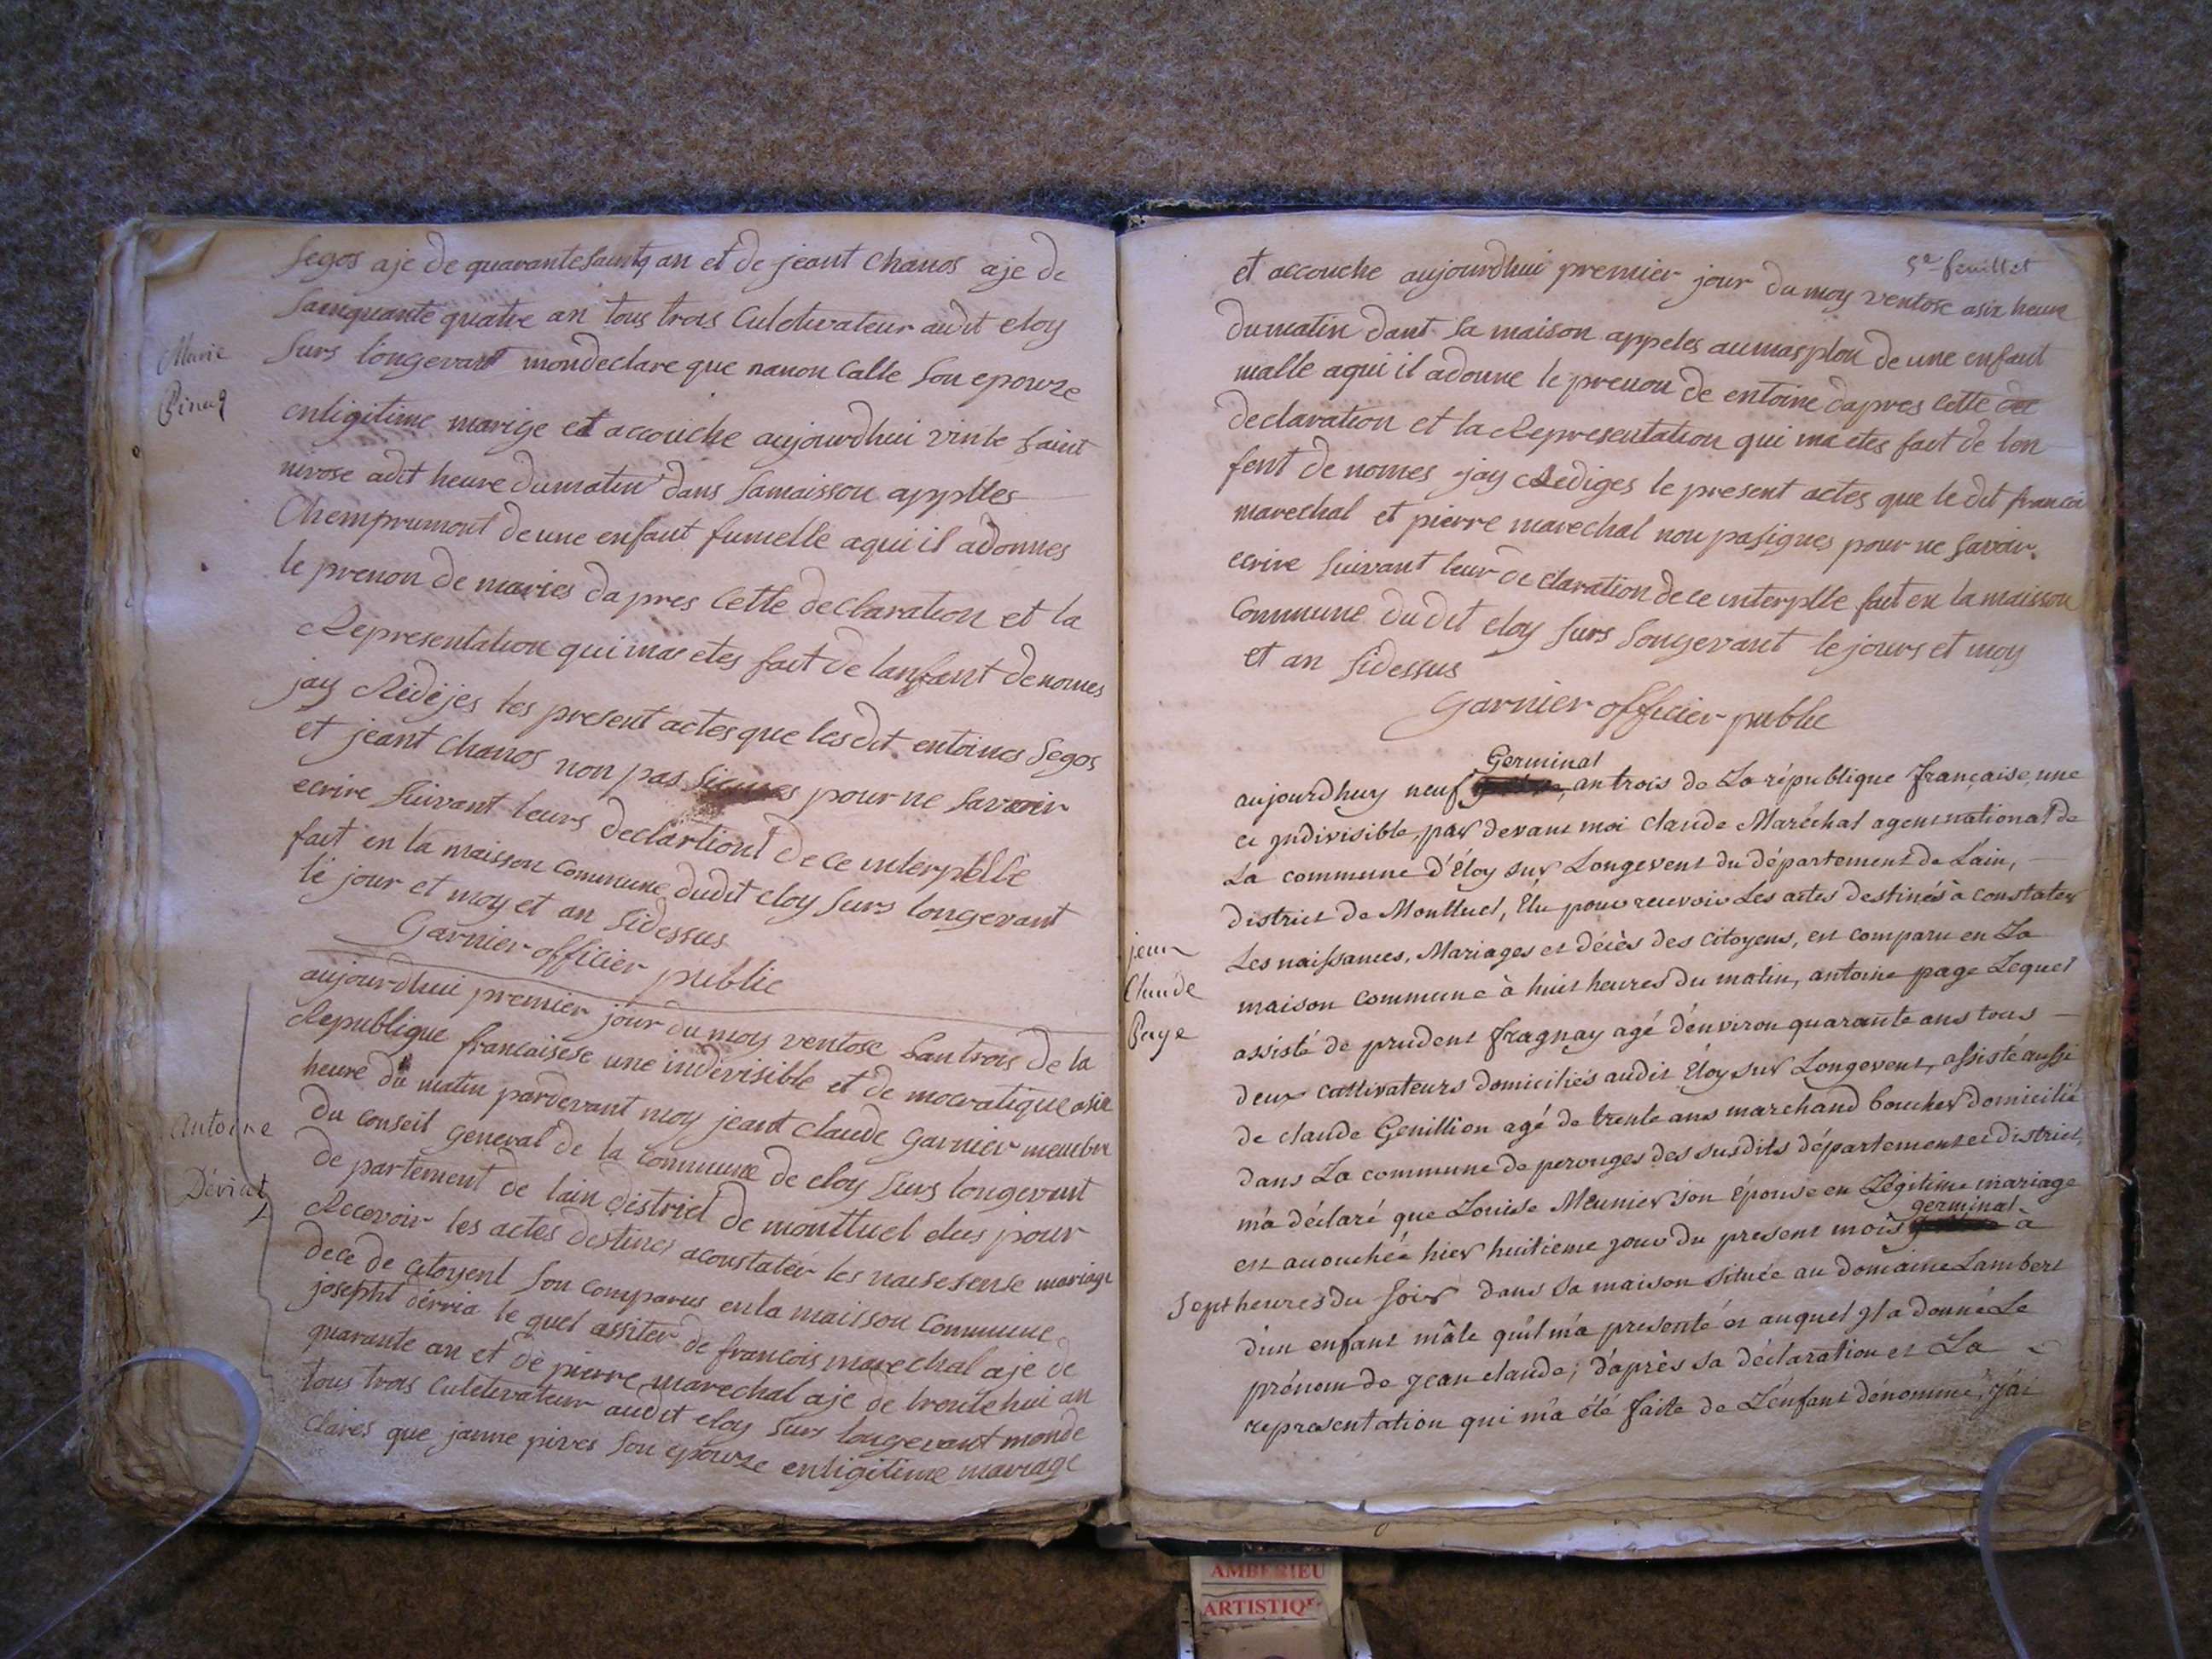 Segos aje de quarante saintq an et de jeant chanos aje de
sainquante quatre an tous trois Culetivateur audit eloy
Surs longevant mondeclare que nanon Calle Son epouze
enligitime marige et accouche aujourdhui vinte saint
nivose adit heure dumatin dans Samaisson applles
Chemprumont de une enfant fumelle aqui il adonnes
le prenon de maries dapres Cette declaration et la
Representation qui mas etes fait de lanfant denomes
jay Redejes les present actes que lesdit entoines Segos
et jeant chanos non pas Signes pour ne Savoir
ecrire Suivant leurs declartiont de ce interpelle
fait en la maisson Commune dudit eloy Surs longevant
le jour et moy et an Sidessus
Garnier officier public
Marie
aujourdhui premier jour du moy ventose lan trois de la
Republique francaisese une indevisible et de mocratique asix
heure du matin pardevant moy jeant Claude Garnier membre
du Conseil general de la Commune de eloy Surs longevant
de partement de lain district de monttuel elues pour
Recevoir les actes destines aconstater les naisesense mariage
dece de citoyent Son Comparus enla maisson Commune
josepht derria le quel assiter de francois marechal aje de
quarante an et de pierre marechal aje de trente hui an
tous trois Culetivateur audit eloy Surs longevant monde
clares que janne pives Son epouze enligitime mariage
Antoine
Dériat
5e feuillet
et accouche aujourdhui premier jour du moy ventose asix heure
dumatin dant Sa maison appeles aumasplon de une enfant
malle aqui il adonne le prenon de entoine dapres Cette
declaration et la Representation qui ma etes fait de len
fent de nomes jay Rediges le present actes que le dit francoi
marechal et pierre marechal non pasignes pour ne Savoir
ecrire Suivant leur declaration de ce interplle fait en la maisson
Commune du dit eloy Surs Longevant le jours et moy
et an Sidessus
Garnier officier public
Germinal
aujourdhuy neuf an trois de La république française une
et jndivisible, par devant moi Claude Maréchal agent national de
La commune d'Éloy sur Longevent du département de L'ain,
district de Montluel, Élu pour recevoir Les actes destinés à constater
Les naissances, Mariages et décès des Citoyens, est comparu en La
maison commune à huit heures du matin, antoine page Lequel
assisté de prudent fragnay agé d'environ quarante ans tous
deux cultivateurs domiciliés audit Éloy sur Longevent, assisté aussi
de claude Genillion agé de trente ans marchand boucher domicilié
dans La commune de perouges des susdits département et district,
m'a déclaré que Louise Meunier son épouse en Légitime mariage
germinal
est accouchée hier huitieme jour du present mois à
Sept heures du soir dans sa maison située au domaine Lambert
d'un enfant mâle qu'il m'a presenté et auquel jl a donné Le
prénom de jean claude; d'après sa déclaration et La
representation qui m'a été faite de L'enfant dénommé, j'ai
jean
Claude
Page
AMBERIEU
ARTISTIQ